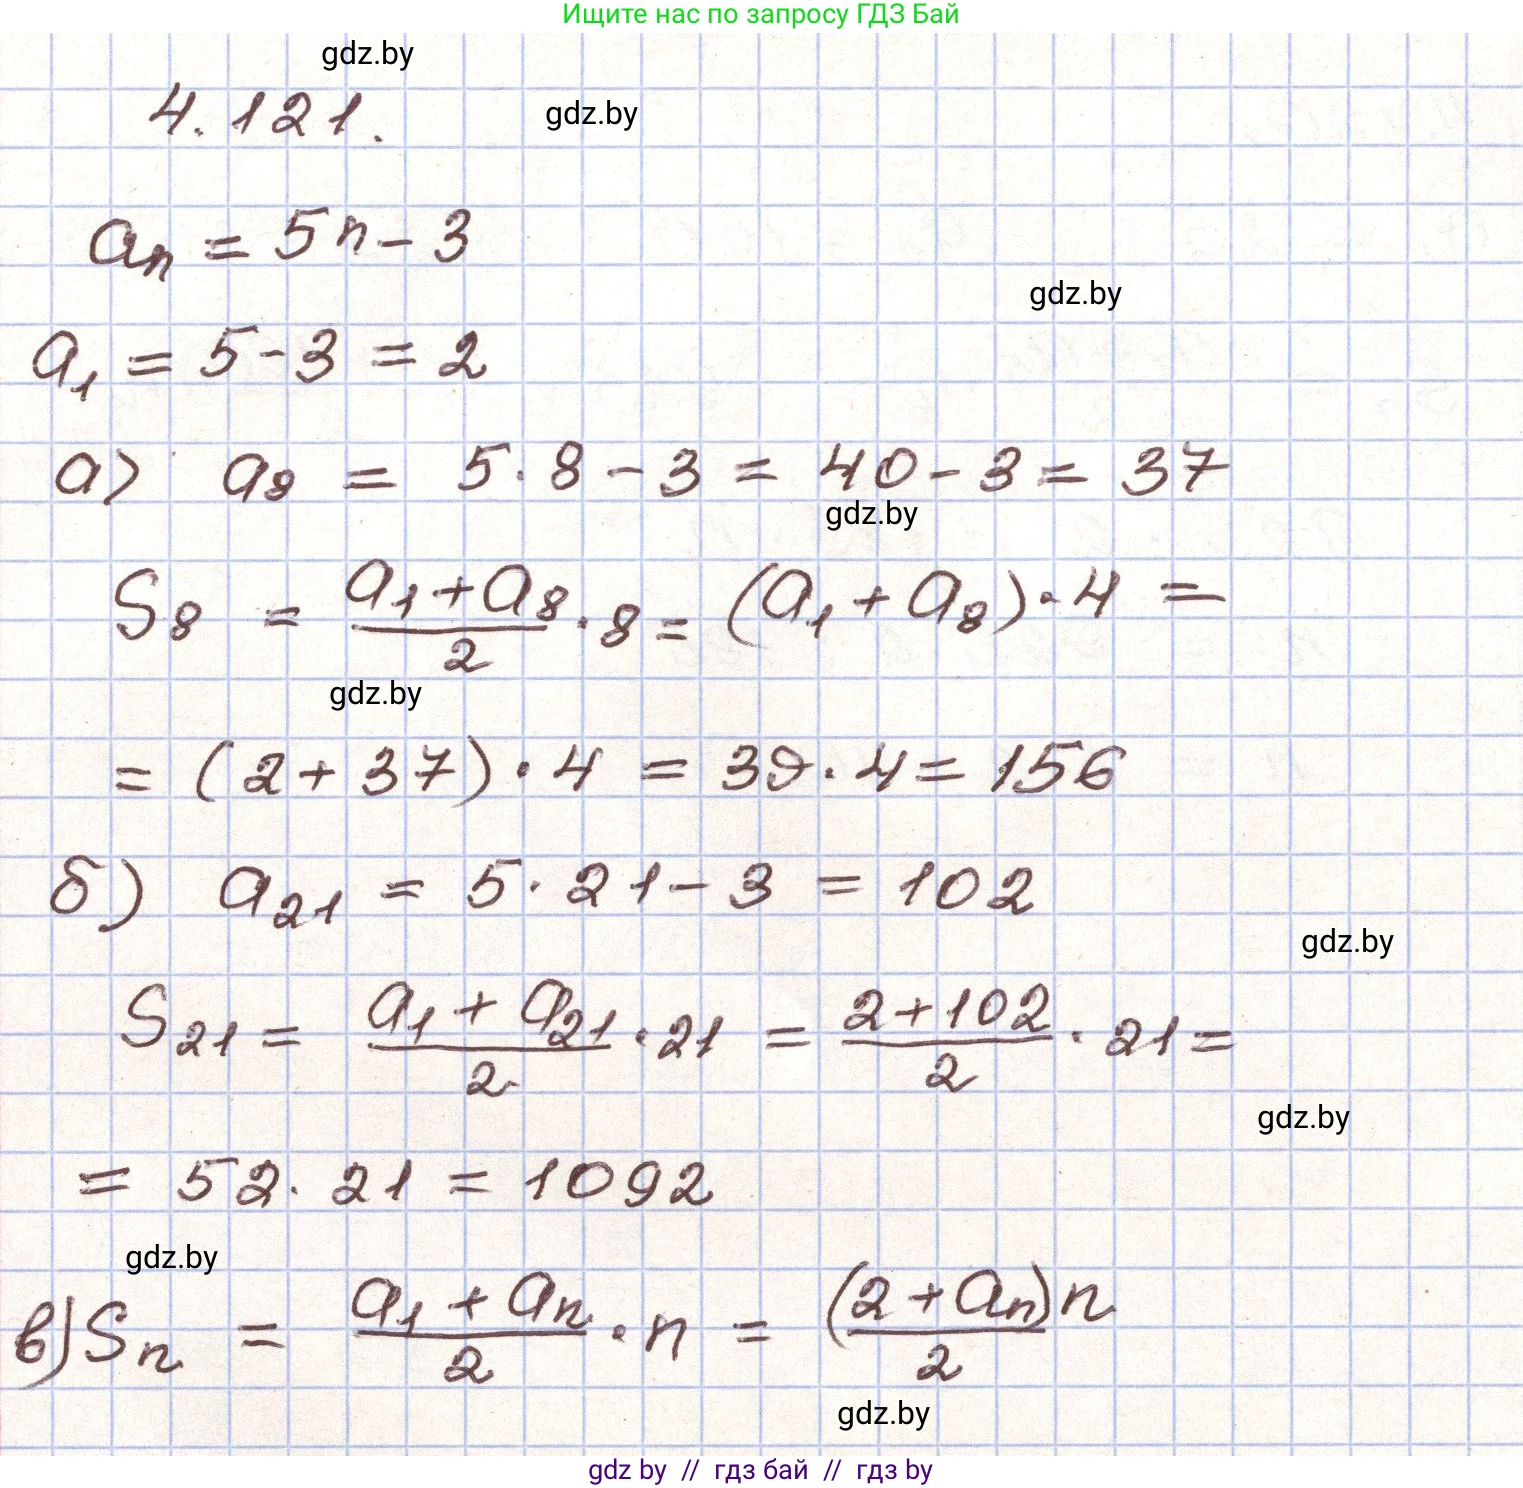 Ищите нас по запросу ГДЗ Бай
gdz.by
4.121.
gdz.by
aₙ = 5n - 3
gdz.by
a₁ = 5 - 3 = 2
а) a₈ = 5 · 8 - 3 = 40 - 3 = 37
gdz.by
S₈ = (a₁ + a₈)/2 · 8 = (a₁ + a₈) · 4 =
gdz.by
= (2 + 37) · 4 = 39 · 4 = 156
б) a₂₁ = 5 · 21 - 3 = 102
gdz.by
S₂₁ = (a₁ + a₂₁)/2 · 21 = (2 + 102)/2 · 21 =
gdz.by
= 52 · 21 = 1092
gdz.by
в) Sₙ = (a₁ + aₙ)/2 · n = (2 + aₙ)n/2
gdz.by
gdz by // гдз бай // гдз by